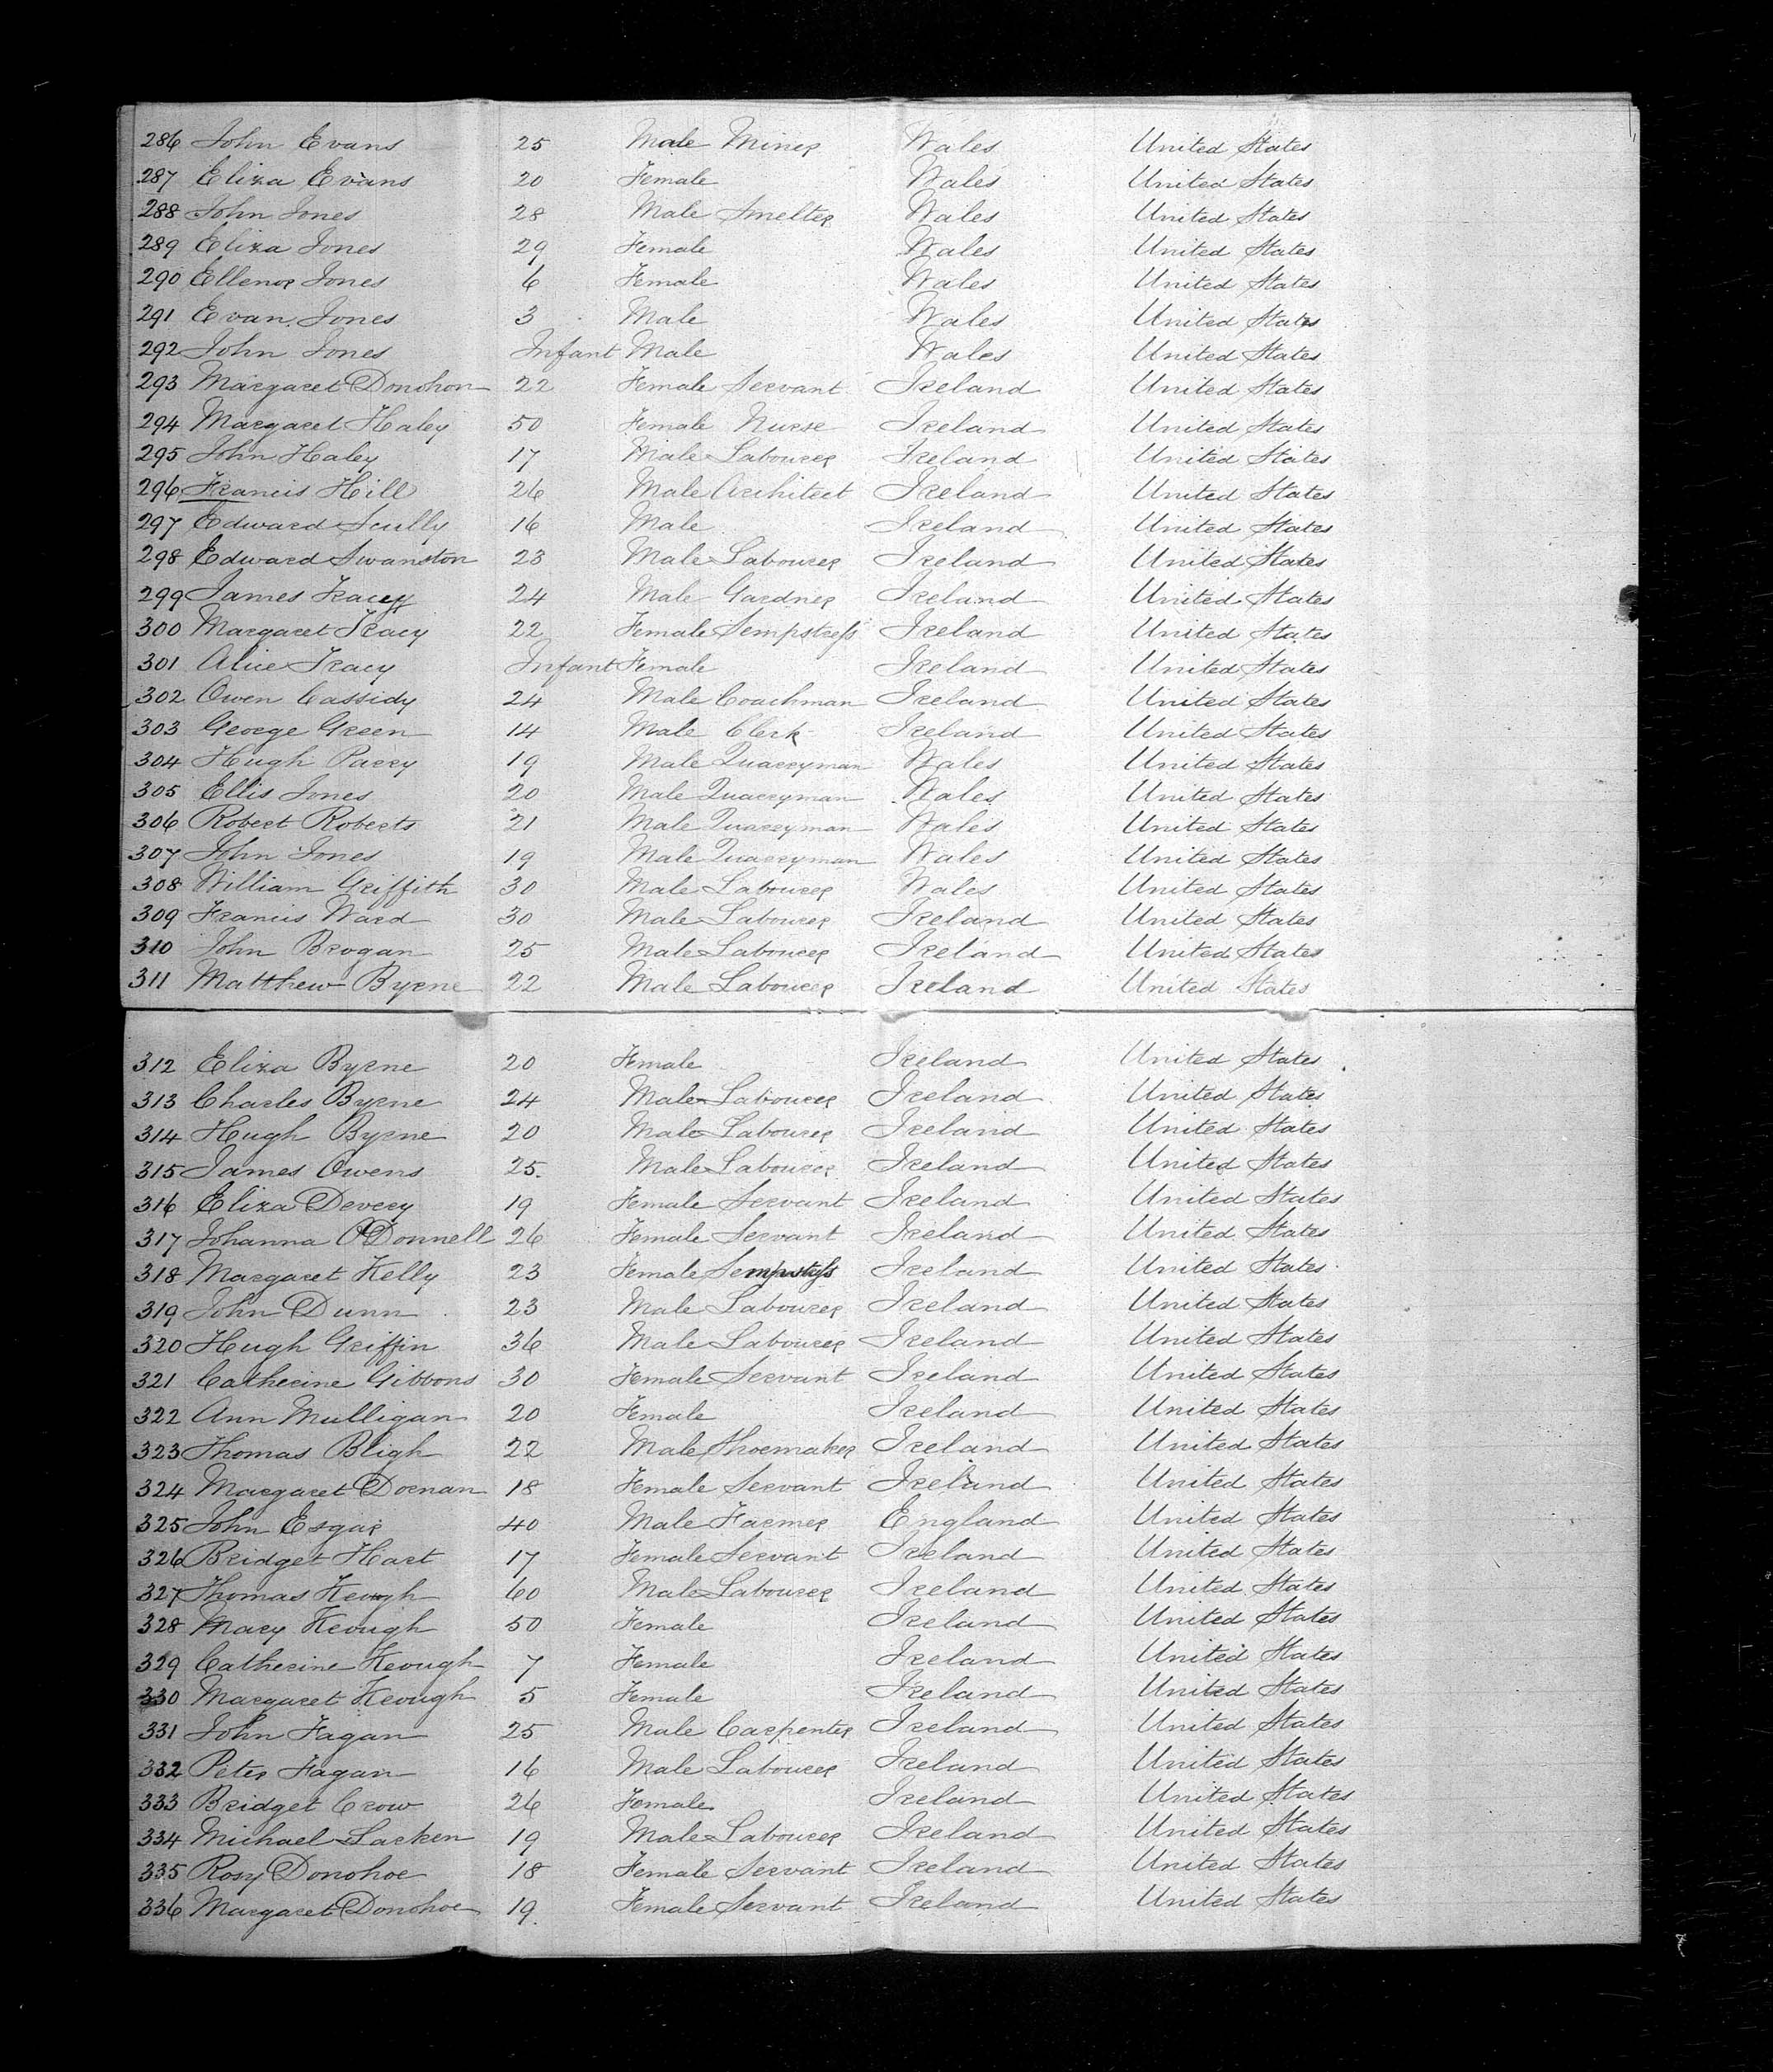 286 John Evans 25 Male Miner Wales United States
287 Eliza Evans 20 Female Wales United States
288 John Jones 28 Male Smelter Wales United States
289 Eliza Jones 29 Female Wales United States
290 Ellenor Jones 6 Female Wales United States
291 Evan Jones 3 Male Wales United States
292 John Jones Infant Male Wales United States
293 Margaret Donohon 22 Female Servant Ireland United States
294 Margaret Haley 50 Female Nurse Ireland United States
295 John Haley 17 Male Labourer Ireland United States
296 Francis Hill 26 Male Architect Ireland United States
297 Edward Scully 16 Male Ireland United States
298 Edward Swanston 23 Male Labourer Ireland United States
299 James Tracey 24 Male Gardner Ireland United States
300 Margaret Tracy 22 Female Sempstress Ireland United States
301 Alice Tracy Infant Female Ireland United States
302 Owen Cassidy 24 Male Coachman Ireland United States
303 George Green 14 Male Clerk Ireland United States
304 Hugh Parry 19 Male Quarryman Wales United States
305 Ellis Jones 20 Male Quarryman Wales United States
306 Robert Roberts 21 Male Quarryman Wales United States
307 John Jones 19 Male Quarryman Wales United States
308 William Griffith 30 Male Labourer Wales United States
309 Francis Ward 30 Male Labourer Ireland United States
310 John Brogan 25 Male Labourer Ireland United States
311 Matthew Byrne 22 Male Labourer Ireland United States
312 Eliza Byrne 20 Female Ireland United States
313 Charles Byrne 24 Male Labourer Ireland United States
314 Hugh Byrne 20 Male Labourer Ireland United States
315 James Owens 25 Male Labourer Ireland United States
316 Eliza Devery 19 Female Servant Ireland United States
317 Johanna O'Donnell 26 Female Servant Ireland United States
318 Margaret Kelly 23 Female Sempstress Ireland United States
319 John Dunn 23 Male Labourer Ireland United States
320 Hugh Griffin 36 Male Labourer Ireland United States
321 Catherine Gibbons 30 Female Servant Ireland United States
322 Ann Mulligan 20 Female Ireland United States
323 Thomas Bligh 22 Male Shoemaker Ireland United States
324 Margaret Dornan 18 Female Servant Ireland United States
325 John Esgar 40 Male Farmer England United States
326 Bridget Hart 17 Female Servant Ireland United States
327 Thomas Keough 60 Male Labourer Ireland United States
328 Mary Keough 50 Female Ireland United States
329 Catherine Keough 7 Female Ireland United States
330 Margaret Keough 5 Female Ireland United States
331 John Fagan 25 Male Carpenter Ireland United States
332 Peter Fagan 16 Male Labourer Ireland United States
333 Bridget Crow 26 Female Ireland United States
334 Michael Lacken 19 Male Labourer Ireland United States
335 Rosy Donohoe 18 Female Servant Ireland United States
336 Margaret Donohoe 19 Female Servant Ireland United States